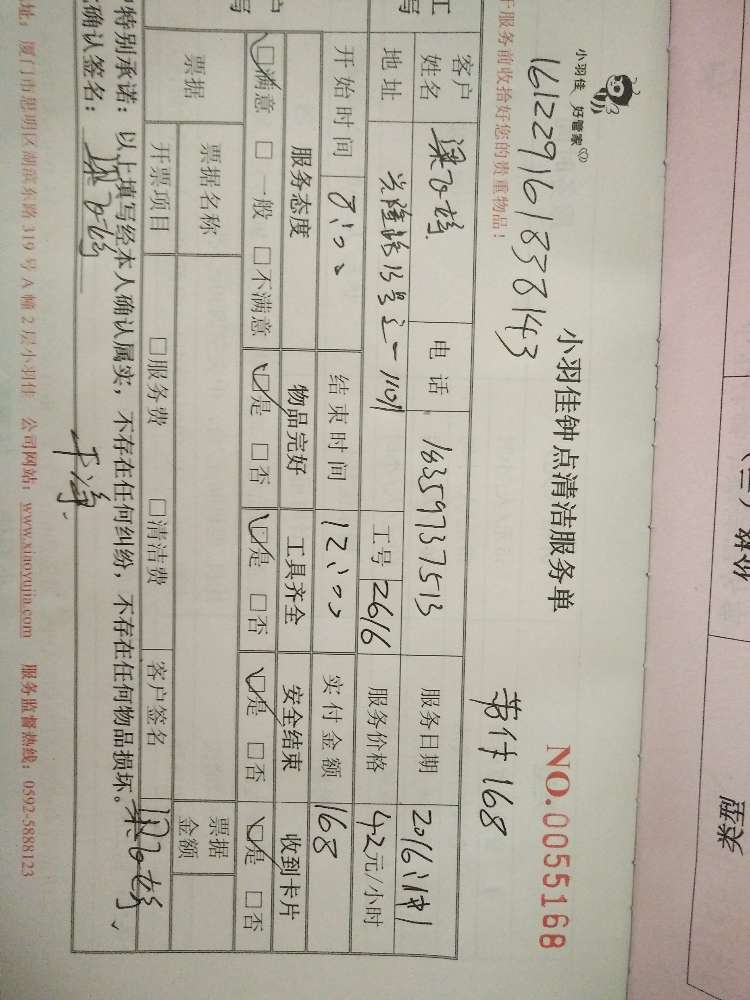 小羽佳
好管家
小羽佳钟点清洁服务单
NO.0055168
161229161838143
劳付 168
于服务前收拾好您的贵重物品！
客户姓名
电话 18359737513
服务日期
地址
工号 2616
服务价格 42元/小时
开始时间 8:00
结束时间 12:00
实付金额 168
服务态度
物品完好
工具齐全
安全结束
收到卡片
□满意 □一般 □不满意
□是 □否
□是 □否
□是 □否
□是 □否
票据
票据名称
票据金额
开票项目
□服务费
□清洁费
客户签名
特别承诺：以上填写经本人确认属实，不存在任何纠纷，不存在任何物品损坏。
确认签名：
干净、
址：厦门市思明区湖滨东路319号A幢2层小羽佳 公司网站：www.xiaoyujia.com 服务监督热线：0592-5888123